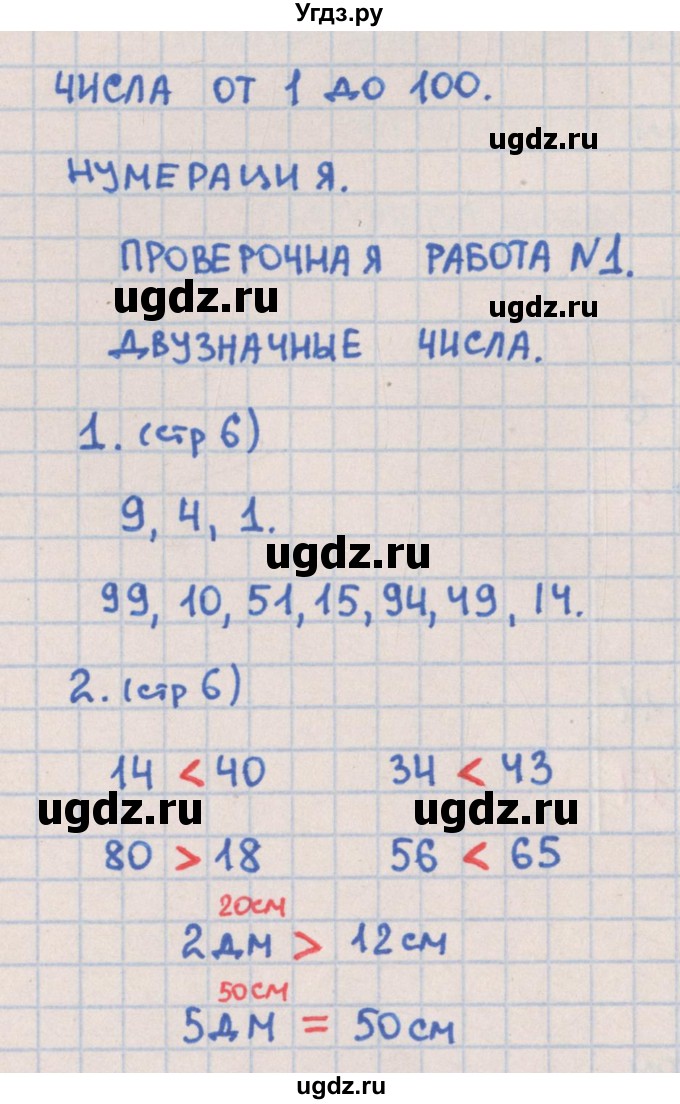 Угдз.ру
ЧИСЛА ОТ 1 ДО 100.
ugdz.ru
НУМЕРАЦИЯ.
ПРОВЕРОЧНАЯ РАБОТА №1.
ugdz.ru
ugdz.ru
ДВУЗНАЧНЫЕ ЧИСЛА.
1. (стр 6)
9, 4, 1.
ugdz.ru
99, 10, 51, 15, 94, 49, 14.
2. (стр 6)
14 < 40 34 < 43
ugdz.ru ugdz.ru
80 > 18 56 < 65
20см
2 дм > 12 см
50см
5 дм = 50 см
ugdz.ru